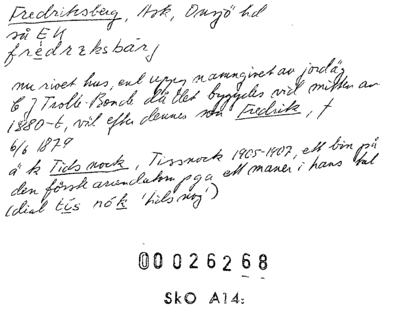 Fredriksberg, Ask, Onsjö hd
så EK
fredrɪksbärj
nu rivet hus, enl uppg namngivet av jordäg
C J Trolle-Bonde då det byggdes vid mitten av
1880-t, väl efter dennes son Fredrik, †
6/6 1879
ä k Tids nock, Tissnock 1905-1907, ett bin på
den förste arrendatorn pga ett maner i hans tal
(dial tís nók 'tids nog')
00026268
SkO A14: